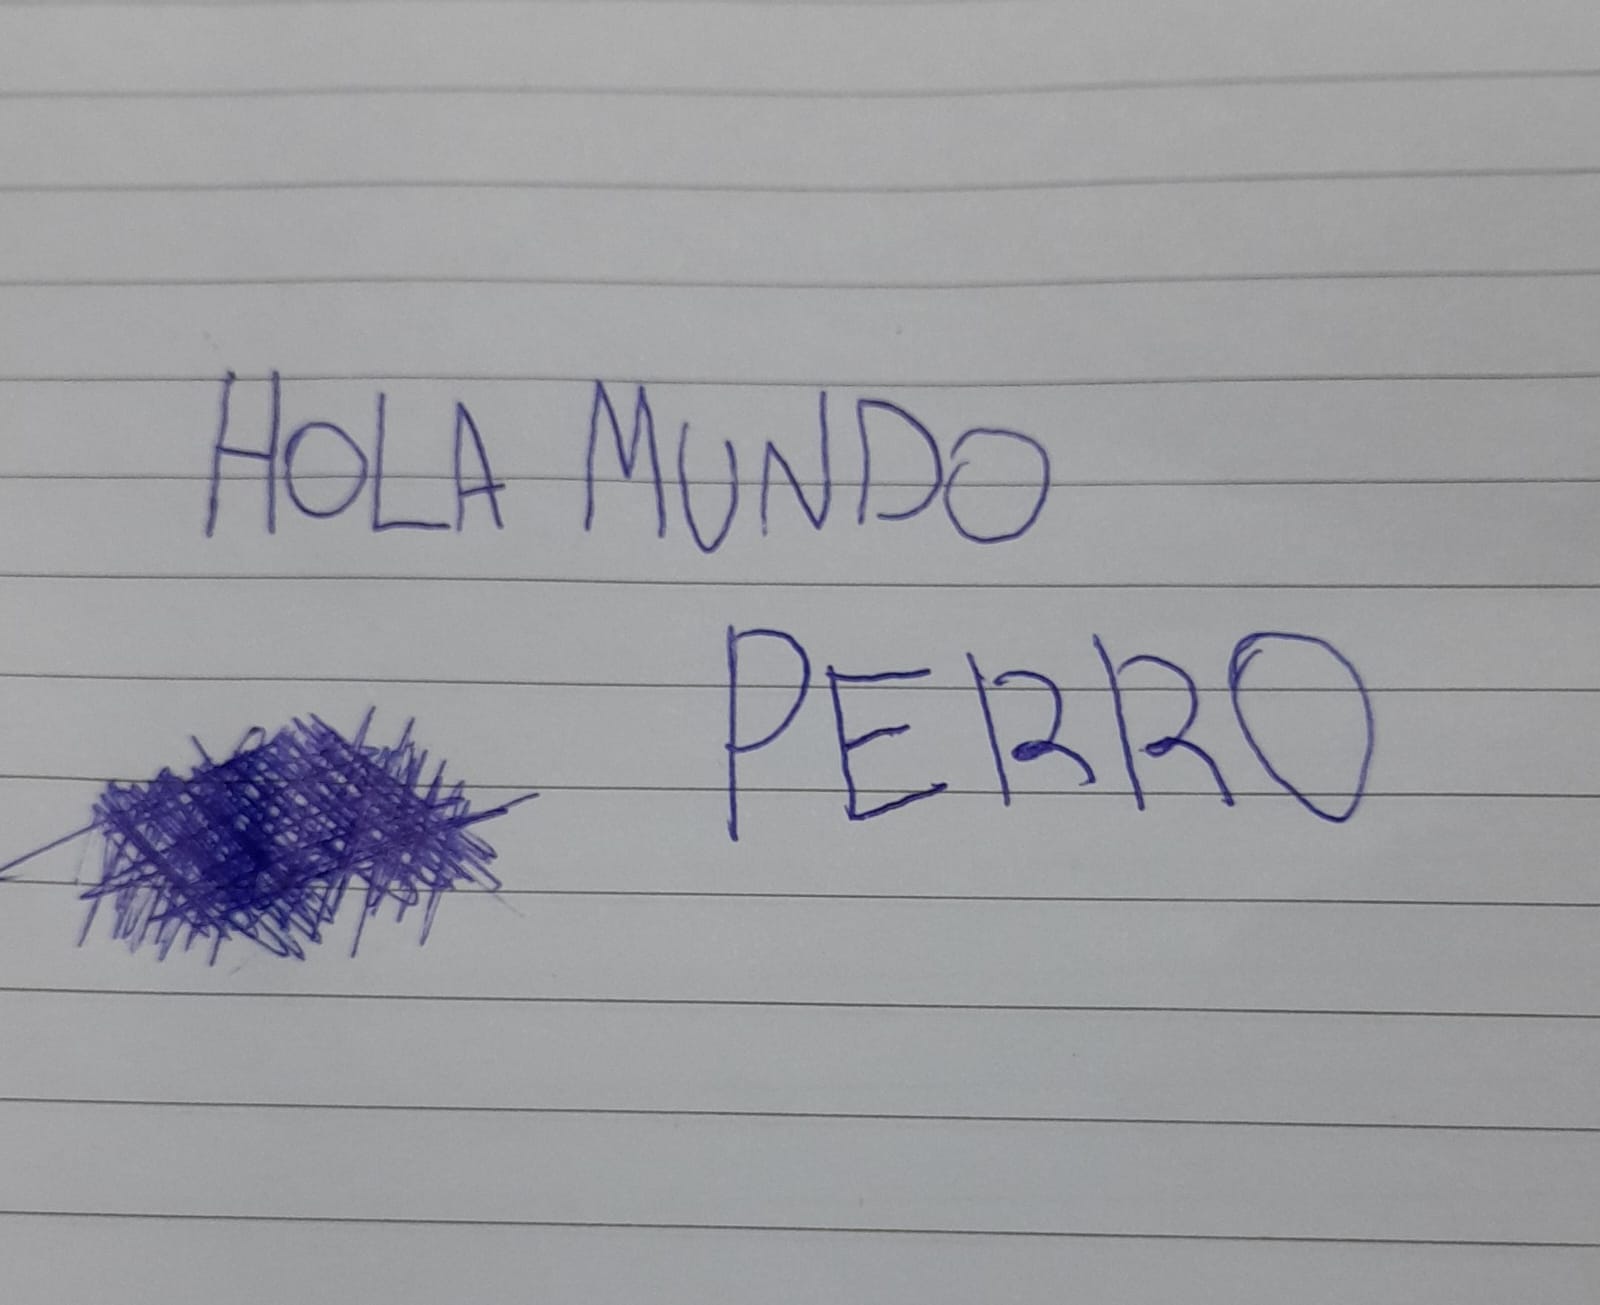 HOLA MUNDO
PERRO